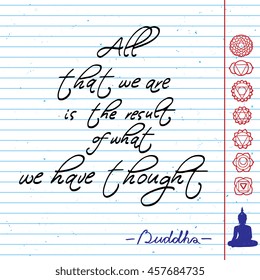 All
that we are
is the result
of what
we have thought
-Buddha-
shutterstock.com · 457684735